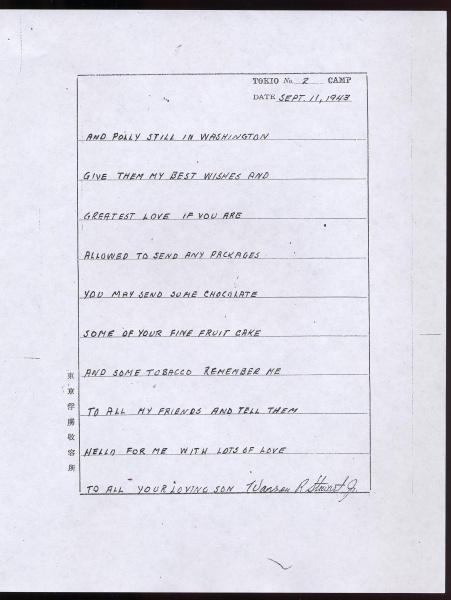 TOKIO No. 2 CAMP
DATE SEPT. 11, 1943
AND POLLY STILL IN WASHINGTON
GIVE THEM MY BEST WISHES AND
GREATEST LOVE IF YOU ARE
ALLOWED TO SEND ANY PACKAGES
YOU MAY SEND SOME CHOCOLATE
SOME OF YOUR FINE FRUIT CAKE
AND SOME TOBACCO REMEMBER ME
TO ALL MY FRIENDS AND TELL THEM
HELLO FOR ME WITH LOTS OF LOVE
TO ALL YOUR LOVING SON
東京俘虜收容所